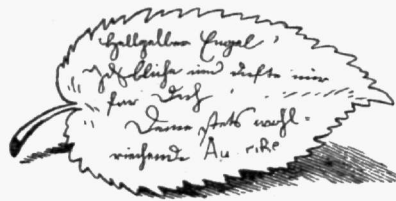 Hellgelber Engel!
Ich blühe und dufte nur
für Dich
Deine stets wohl=
riechende